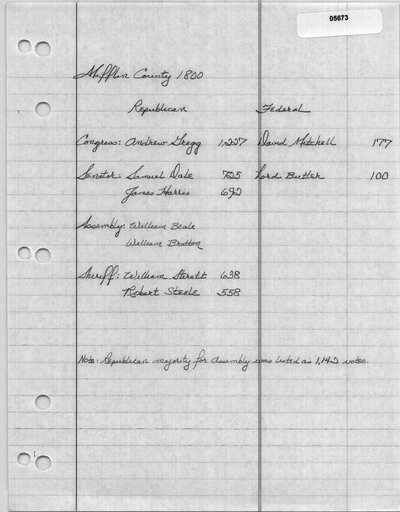 05673
Mifflin County 1800
Republican Federal
Congress: Andrew Gregg 1,227 David Mitchell 177
Senator: Samuel Dale 725 Lord Butler 100
James Harris 692
Assembly: William Beale
William Bratton
Sheriff: William Sterett 638
Robert Steele 558
Note: Republican majority for Assembly was listed as 1,142 votes.